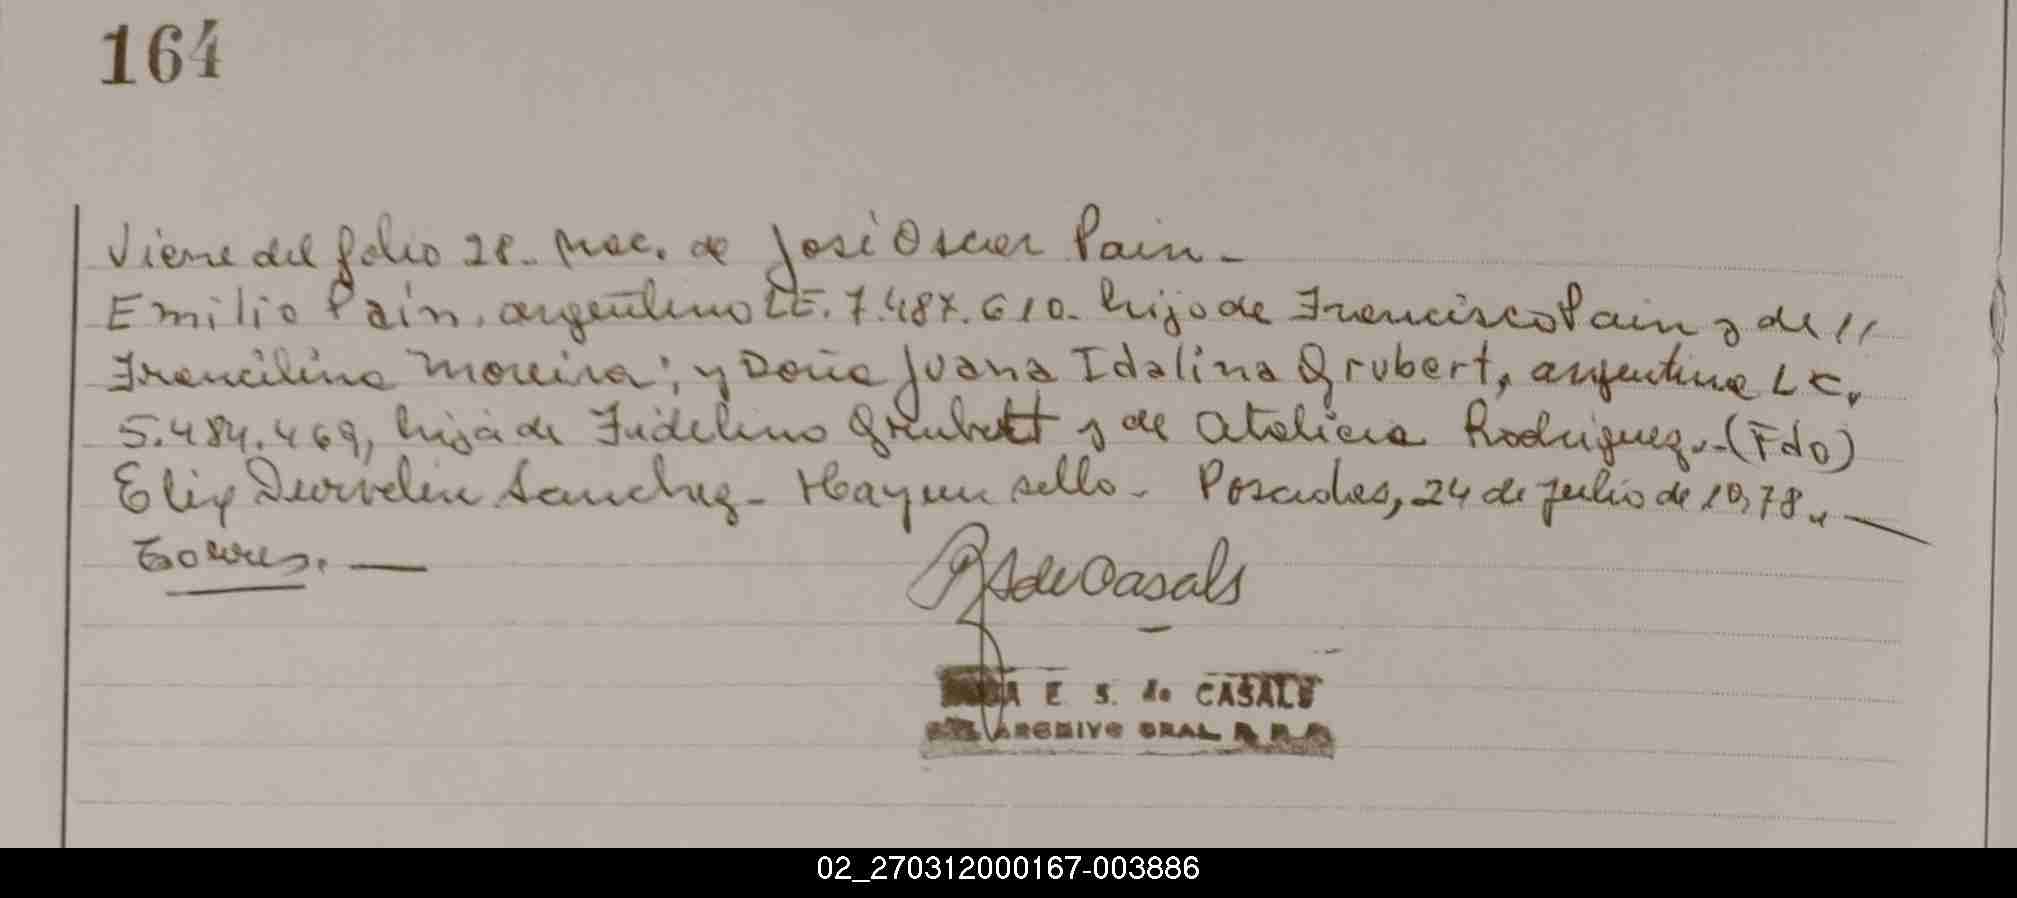 164
Viene del folio 28. Nac. de José Oscar Pain -
Emilio Pain, argentino LE. 7.487.610. hijo de Francisco Pain y de //
Francilina Moreira; y Doña Juana Idalina Grubert, argentina LC.
5.484.469, hija de Fidelino Grubert y de Atalicia Rodriguez.-(Fdo)
Elix Durvelin Sanchez - Hay un sello - Posadas, 24 de julio de 19,78. —
Torres. —
de Casals
A E S. de CASALS
ARCHIVO GRAL
02_270312000167-003886